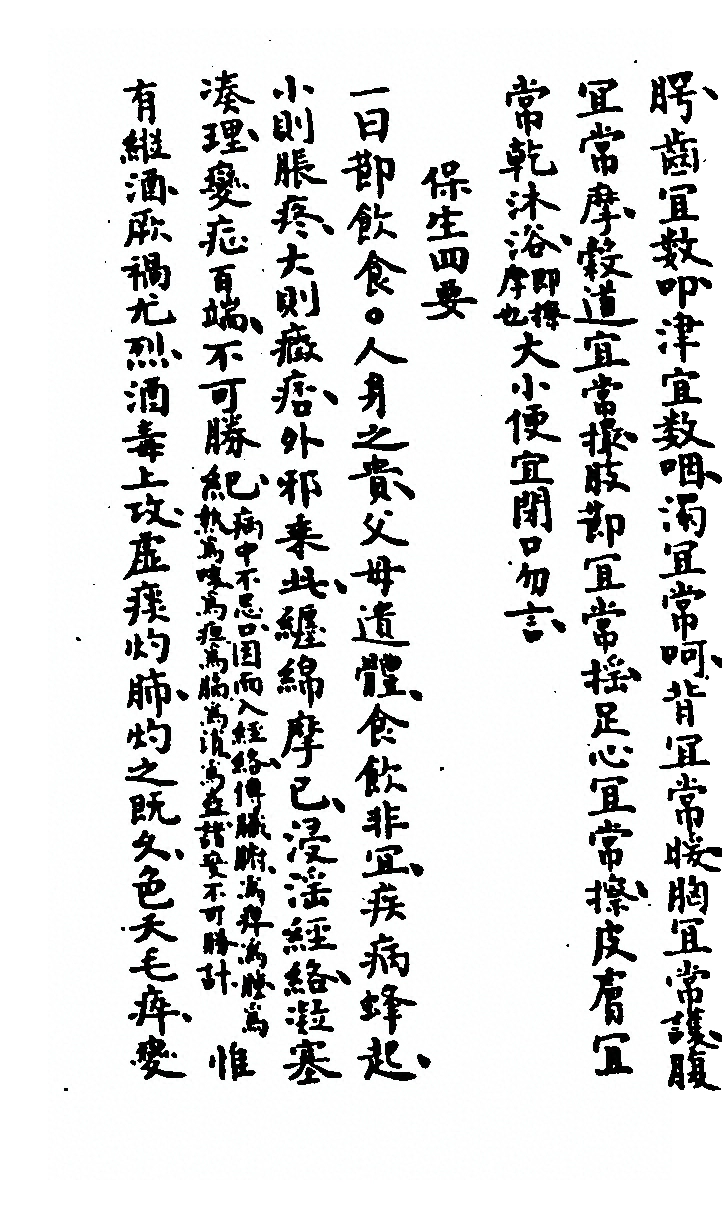 腭、齒宜数叩、津宜数咽、濁宜常呵、背宜常暖、胸宜常護、腹
宜常摩、穀道宜常撮、肢節宜常揺、足心宜常擦、皮膚宜
常乾沐浴、即擦摩也大小便宜閉口勿言、
保生四要
一曰節飲食。人身之貴、父母遺體、食飲非宜、疾病蜂起、
小則脹疼、大則癥痞、外邪乘此、纏綿摩已、浸淫經絡、凝塞
湊理、變症百端、不可勝紀、病中不忌口、因而入經絡、傳臟腑、為痺為腫為熱為嗽為疸為為消為諸變不可勝計惟
有縱酒、厥禍尤烈、酒毒上攻、虛痰灼肺、灼之既久、色夭毛瘁、變